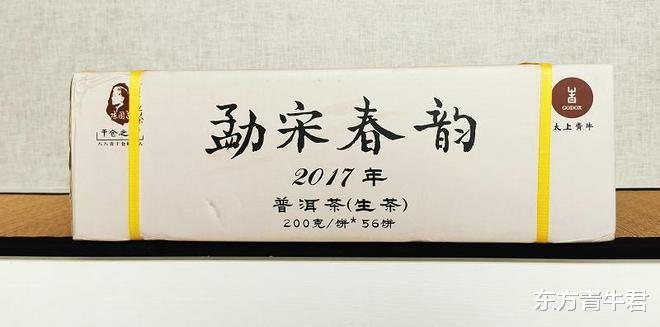 勐宋春韵
2017年
普洱茶(生茶)
200克/饼*56饼
干仓之
GODOX
太上青牛
东方青牛君